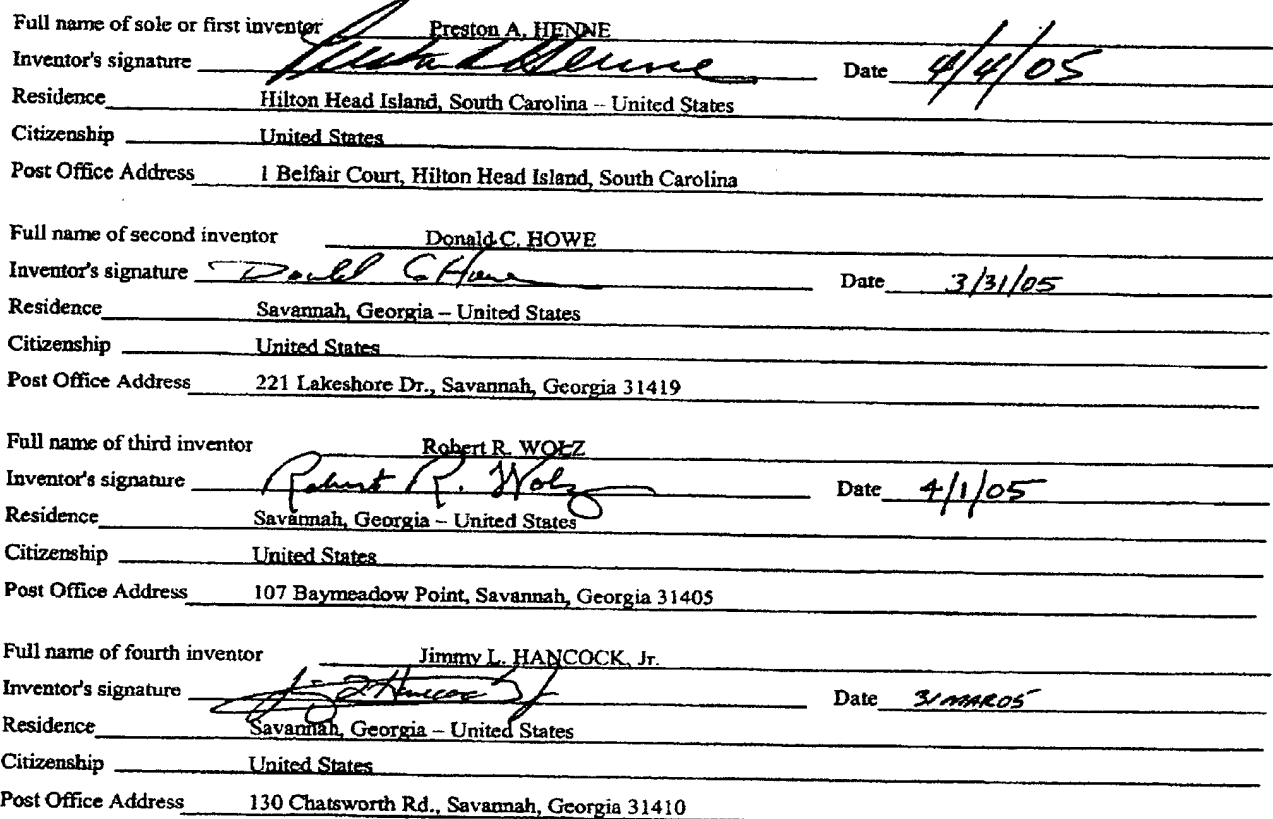 Full name of sole or first inventor Preston A. HENNE
Inventor's signature Preston A Henne Date 4/4/05
Residence Hilton Head Island, South Carolina – United States
Citizenship United States
Post Office Address 1 Belfair Court, Hilton Head Island, South Carolina
Full name of second inventor Donald C. HOWE
Inventor's signature Donald C Howe Date 3/31/05
Residence Savannah, Georgia – United States
Citizenship United States
Post Office Address 221 Lakeshore Dr., Savannah, Georgia 31419
Full name of third inventor Robert R. WOLZ
Inventor's signature Robert R. Wolz Date 4/1/05
Residence Savannah, Georgia – United States
Citizenship United States
Post Office Address 107 Baymeadow Point, Savannah, Georgia 31405
Full name of fourth inventor Jimmy L. HANCOCK, Jr.
Inventor's signature J L Hancock Jr Date 31 MAR 05
Residence Savannah, Georgia – United States
Citizenship United States
Post Office Address 130 Chatsworth Rd., Savannah, Georgia 31410